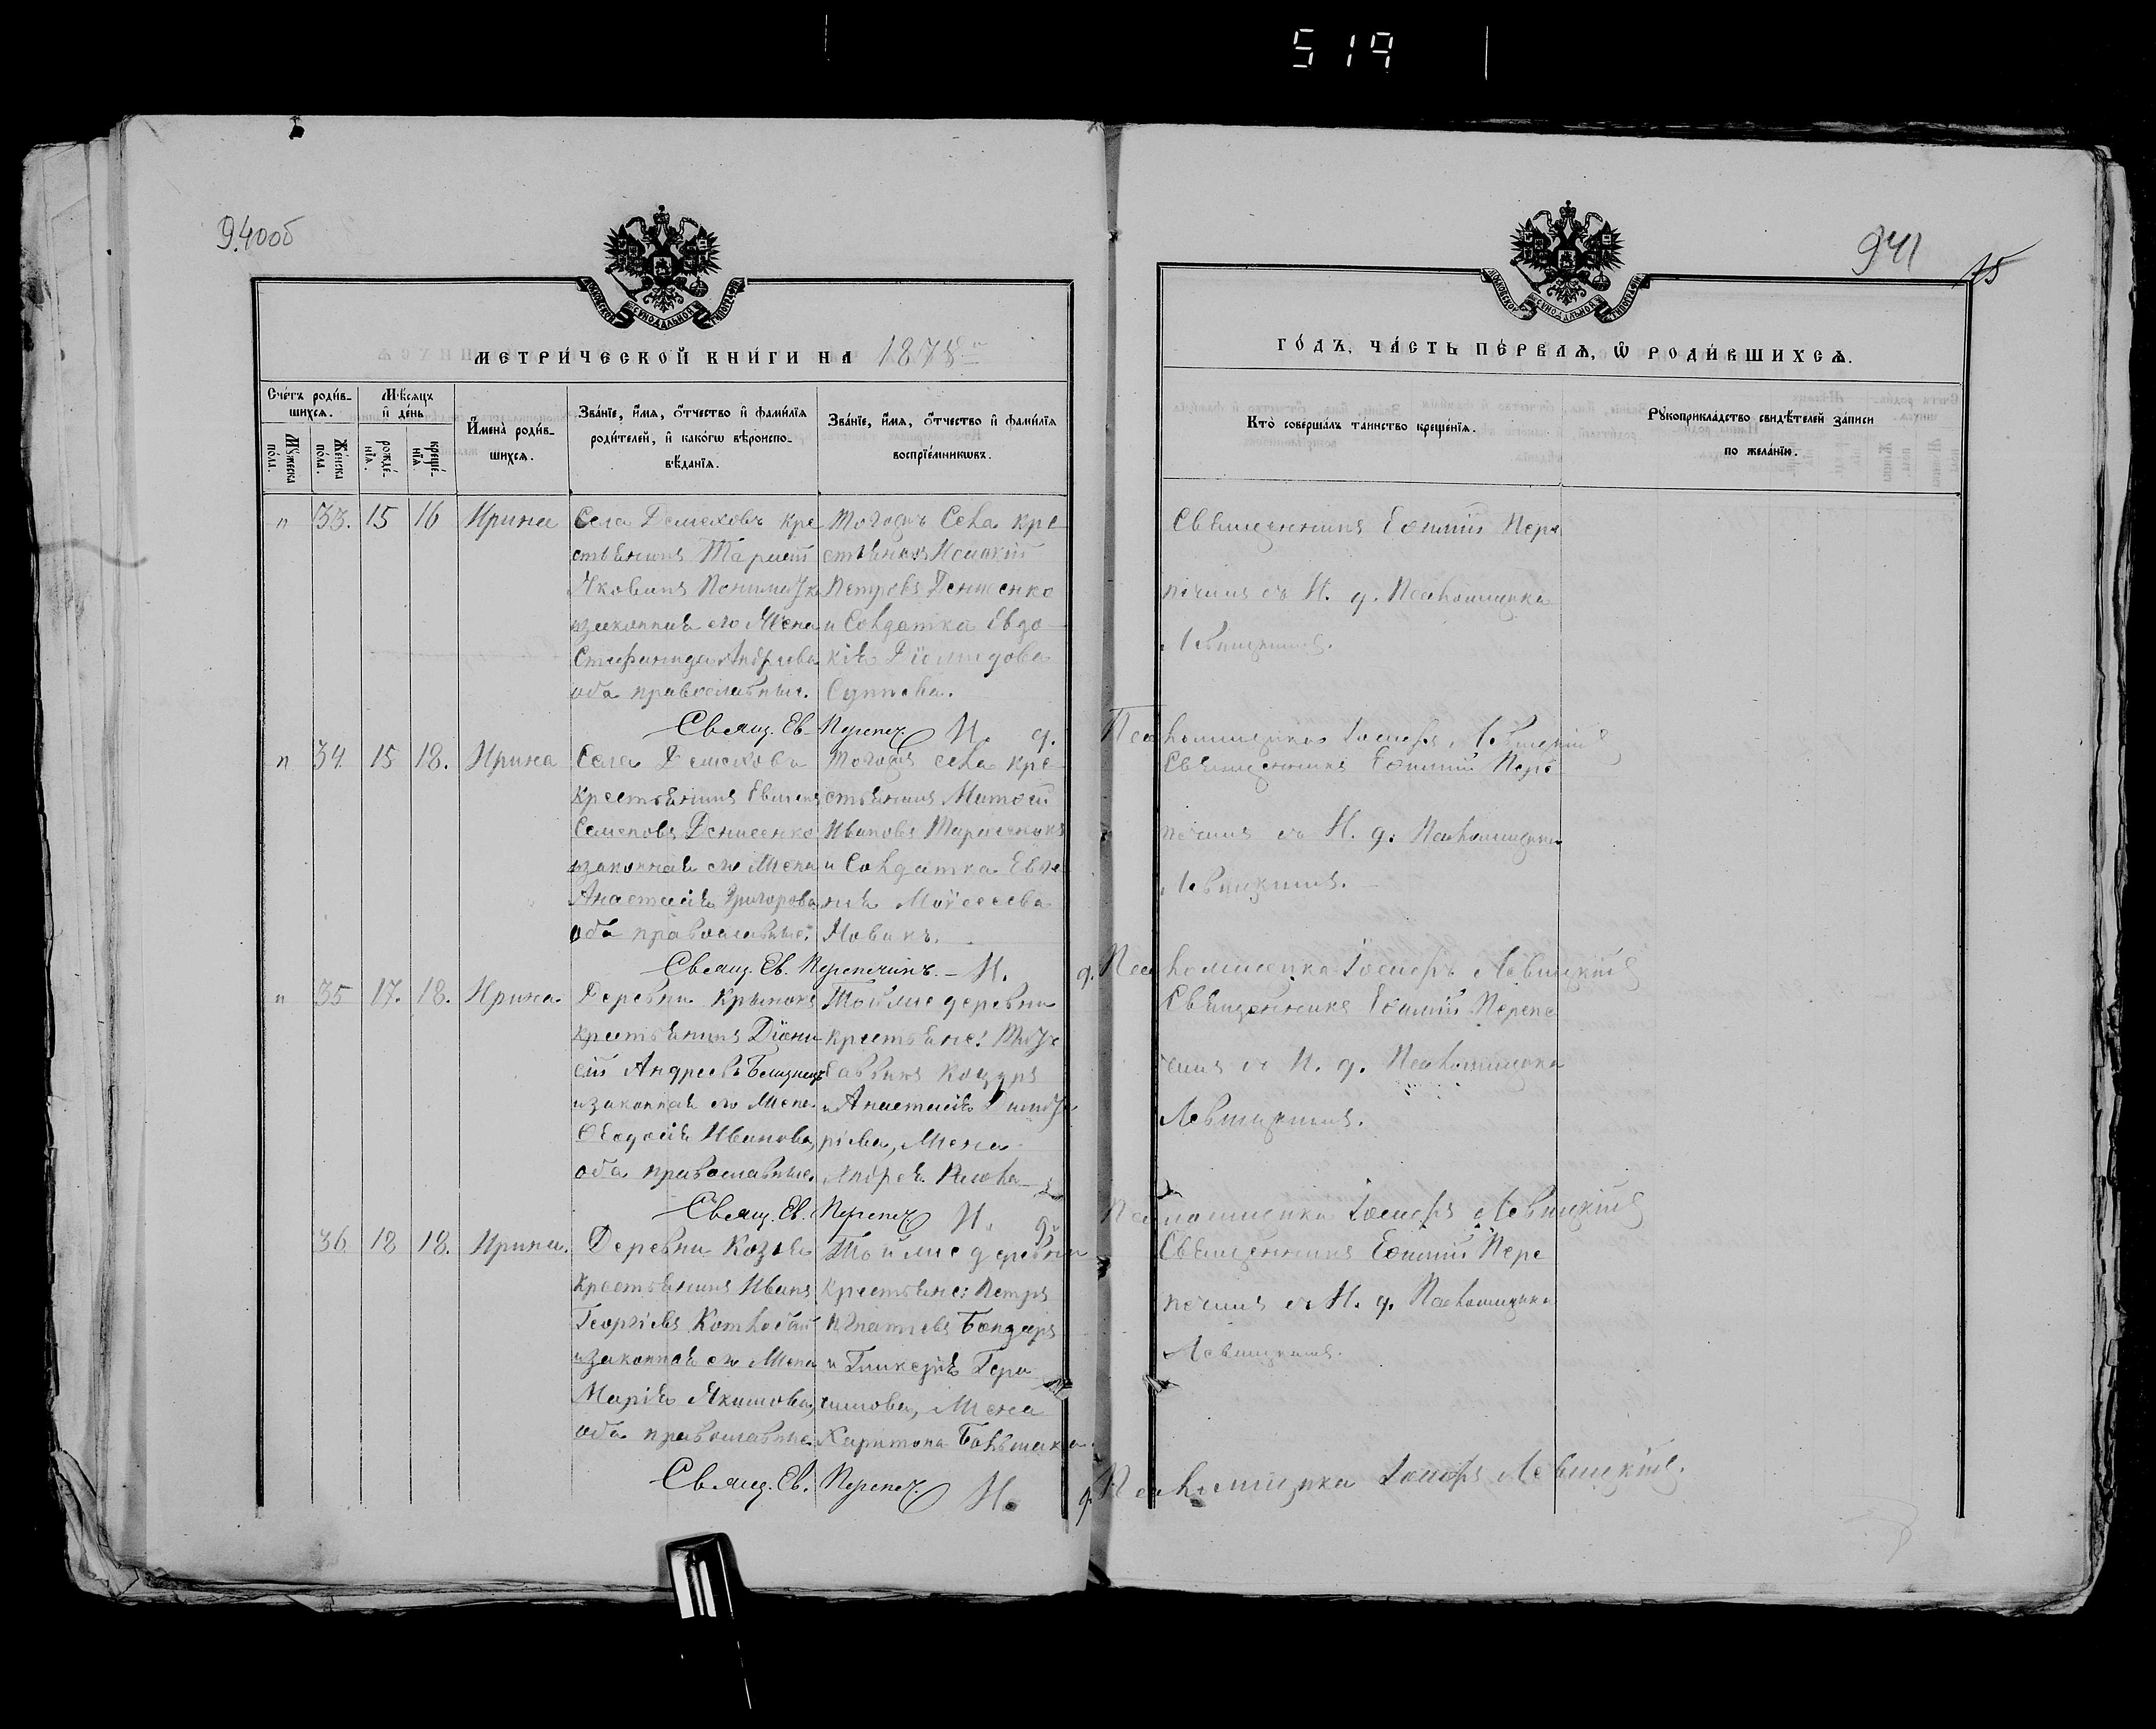 519
940об
941
15
МОСКОВСКОЙ СѴНОДАЛЬНОЙ ТИПОГРАФІИ
МОСКОВСКОЙ СѴНОДАЛЬНОЙ ТИПОГРАФІИ
МЕТРИ́ЧЕСКОЙ КНИ́ГИ НА 1878
ГО́ДЪ, ЧА́СТЬ ПЕ́РВАѦ, Ѿ РОДИ́ВШИХСѦ.
Сче́тъ роди́в-
шихся.
Мужеска по́ла.
Же́нска по́ла.
Мѣ́сяцъ
и де́нь
рожде́-
нія.
креще́-
нія.
Имена̀ роди́в-
шихся.
Зва́ніе, и́мя, о́тчество и фами́лія
роди́телей, и како́гѡ вѣроиспо-
вѣ́данія.
Зва́ніе, и́мя, о́тчество и фами́лія
воспріе́мникѡвъ.
Кто̀ соверша́лъ та́инство креще́нія.
Рукоприкла́дство свидѣ́телей за́писи
по жела́нію.
" 33. 15 16 Ирина
Села Демеховъ кре
стьянинъ
Яковинъ
и законная его жена
Стефанида Андреева
оба православные.
Тогожъ села кре
стьянинъ
Петровъ Денисенко
и Солдатка Евдо
кія Діомидова
Священникъ Евѳимій Пере
печинъ съ И. д. Псаломщика
Левицкимъ.
Свящ. Ев. Перепеч. И. д. Псаломщика Іосифъ Левицкій
" 34 15 18. Ирина
Села Демехова
крестьянинъ Евген
Семеновъ Денисенко
и законная его жена
Анастасія Григорова
оба православные.
Тогожъ села кре
стьянинъ Матѳей
Ивановъ
и Солдатка Евге
нія Моѵсеева
Новикъ.
Священникъ Евѳимій Пере
печинъ съ И. д. Псаломщика
Левицкимъ.
Свящ. Ев. Перепечинъ. И. д. Псаломщика Іосифъ Левицкій
" 35 17. 18. Ирина
Деревни Крынокъ
крестьянинъ Діони
сій Андреевъ
и законная его жена
Ѳеодосія Иванова,
оба православные.
Тойже деревни
крестьяне:
Саввинъ
и Анастасія Димит
ріева, жена
Андрея
Священникъ Евѳимій Перепе
чинъ съ И. д. Псаломщика
Левицкимъ.
Свящ. Ев. Перепеч. И. д. Псаломщика Іосифъ Левицкій
36 18 18. Ирина.
Деревни
крестьянинъ Иванъ
Георгіевъ
и законная его жена
Марія Якимова,
оба православные
Тойже деревни
крестьяне: Петръ
Игнатіевъ Бондарь
и Гликерія Гера
симова, жена
Харитона Большака.
Священникъ Евѳимій Пере
печинъ съ И. д. Псаломщика
Левицкимъ.
Свящ. Ев. Перепеч. И. д. Псаломщика Іосифъ Левицкій.